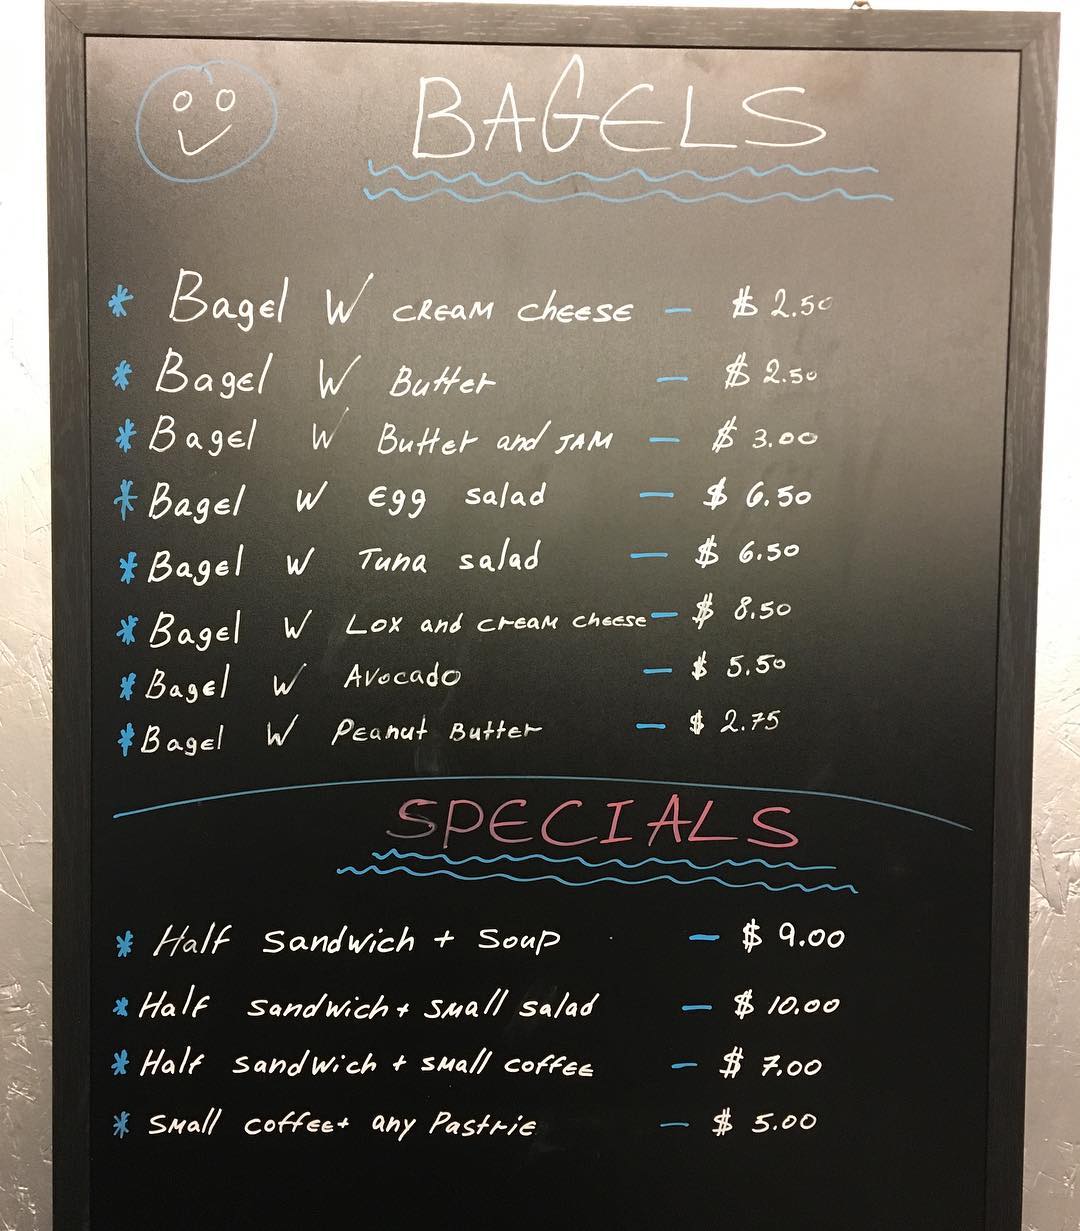 BAGELS
* Bagel W cream cheese — $ 2.50
* Bagel W Butter — $ 2.50
* Bagel W Butter and JAM — $ 3.00
* Bagel W Egg salad — $ 6.50
* Bagel W Tuna salad — $ 6.50
* Bagel W Lox and cream cheese — $ 8.50
* Bagel W Avocado — $ 5.50
* Bagel W Peanut Butter — $ 2.75
SPECIALS
* Half Sandwich + Soup — $ 9.00
* Half sandwich + small salad — $ 10.00
* Half sandwich + small coffee — $ 7.00
* Small coffee + any Pastrie — $ 5.00